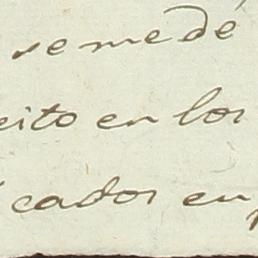 se me dé
eito en los
cados en